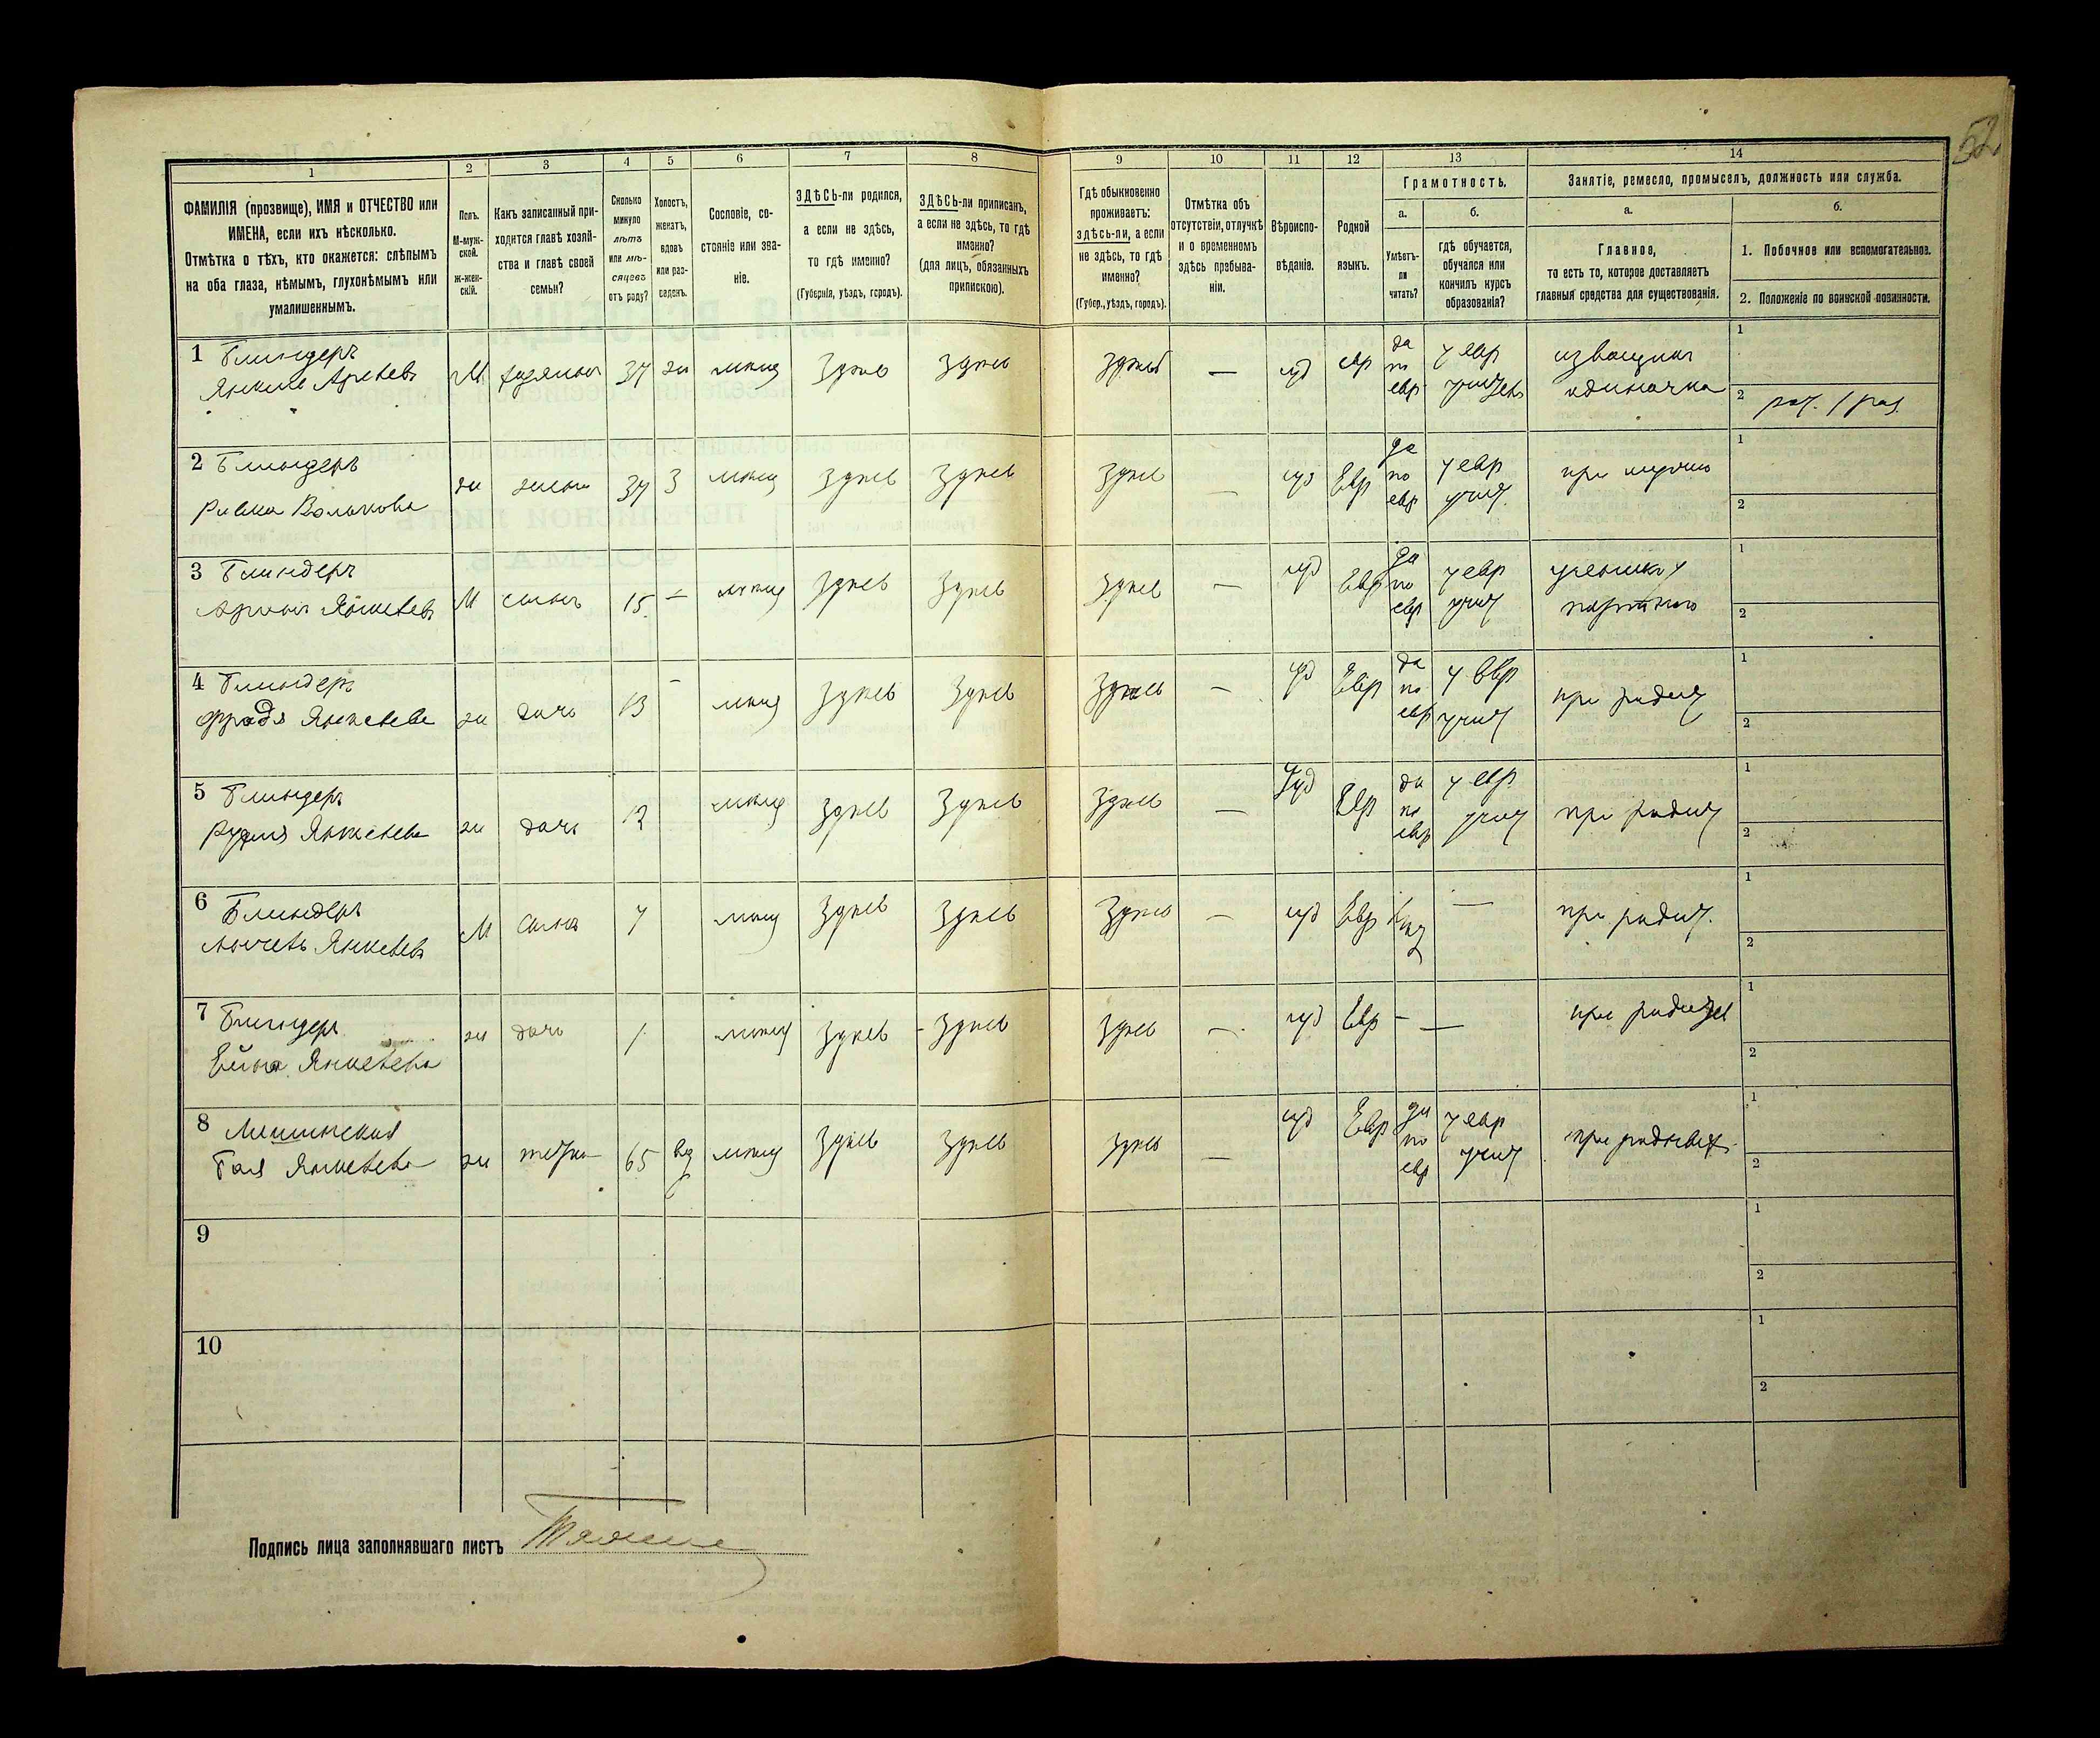 52
1 2 3 4 5 6 7 8 9 10 11 12 13 14
ФАМИЛІЯ (прозвище), ИМЯ и ОТЧЕСТВО или
ИМЕНА, если ихъ нѣсколько.
Отмѣтка о тѣхъ, кто окажется: слѣпымъ
на оба глаза, нѣмымъ, глухонѣмымъ или
умалишеннымъ.
Полъ.
М-муж-
ской.
ж-жен-
скій.
Какъ записанный при-
ходится главѣ хозяй-
ства и главѣ своей
семьи?
Сколько
минуло
лѣтъ
или мѣ-
сяцевъ
отъ роду?
Холостъ,
женатъ,
вдовъ
или раз-
веденъ.
Сословіе, со-
стояніе или зва-
ніе.
ЗДѢСЬ-ли родился,
а если не здѣсь,
то гдѣ именно?
(Губернія, уѣздъ, городъ).
ЗДѢСЬ-ли приписанъ,
а если не здѣсь, то гдѣ
именно?
(для лицъ, обязанныхъ
припискою).
Гдѣ обыкновенно
проживаетъ:
здѣсь-ли, а если
не здѣсь, то гдѣ
именно?
(Губер., уѣздъ, городъ).
Отмѣтка объ
отсутствіи, отлучкѣ
и о временномъ
здѣсь пребыва-
ніи.
Вѣроиспо-
вѣданіе.
Родной
языкъ.
Грамотность.
а.
Умѣетъ-
ли
читать?
б.
гдѣ обучается,
обучался или
кончилъ курсъ
образованія?
Занятіе, ремесло, промыселъ, должность или служба.
а.
Главное,
то есть то, которое доставляетъ
главныя средства для существованія.
б.
1. Побочное или вспомогательное.
2. Положеніе по воинской повинности.
1 Блиндеръ
М хозяинъ 37 мѣщ Здѣсь Здѣсь Здѣсь — іуд евр
да
по
евр
у евр
извощикъ
одиночка
1
2
2 Блиндеръ
Ривка Волькова
жена 37 З мѣщ Здѣсь Здѣсь Здѣсь — іуд Евр
да
по
евр
у евр
учит.
1
2
3 Блиндеръ
М сынъ 15 — мѣщ Здѣсь Здѣсь Здѣсь — іуд Евр
да
по
евр
у евр
учит
ученикъ у
портного
1
2
4 Блиндеръ
Фрадя Янкелева
дочь 13 — мѣщ Здѣсь Здѣсь Здѣсь — іуд Евр
да
по
евр
у евр
учит
при родит
1
2
5 Блиндеръ
Янкелева
дочь 12 мѣщ Здѣсь Здѣсь Здѣсь — Іуд Евр
да
по
евр
у евр.
учит
при родит
1
2
6 Блиндеръ
Янкелевъ
М сынъ 7 мѣщ Здѣсь Здѣсь Здѣсь — іуд Евр —
при родит.
1
2
7 Блиндеръ
Янкелева
дочь 1 мѣщ Здѣсь Здѣсь Здѣсь — іуд Евр — —
при родител
1
2
8
Янкелева
65 мѣщ Здѣсь Здѣсь Здѣсь — іуд Евр
да
по
евр
у евр
учит
1
2
9
1
2
10
1
2
Подпись лица заполнявшаго листъ